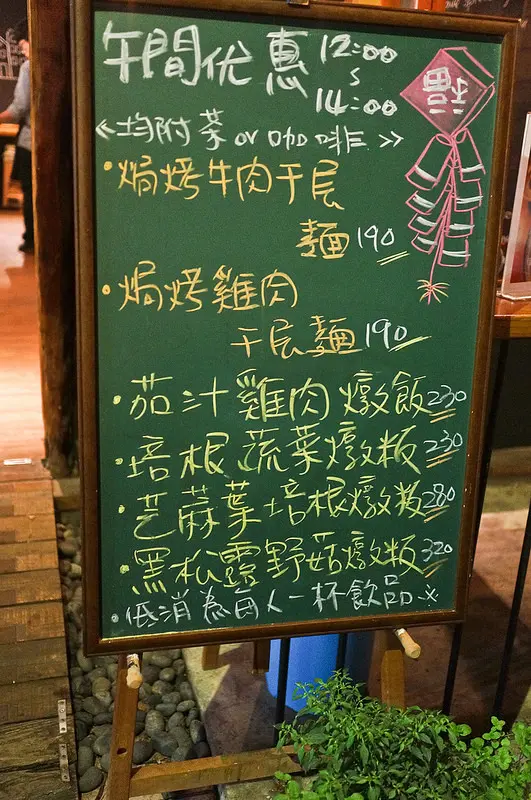 午間优惠 12:00
~
14:00
福
《均附茶 or 咖啡》
·焗烤牛肉千层
麵 190
·焗烤雞肉
千层麵 190
·茄汁雞肉燉飯 230
·培根蔬菜燉粄 230
·芝蔴葉培根燉粄 280
·黑松露野菇燉粄 320
·低消為每人一杯飲品※